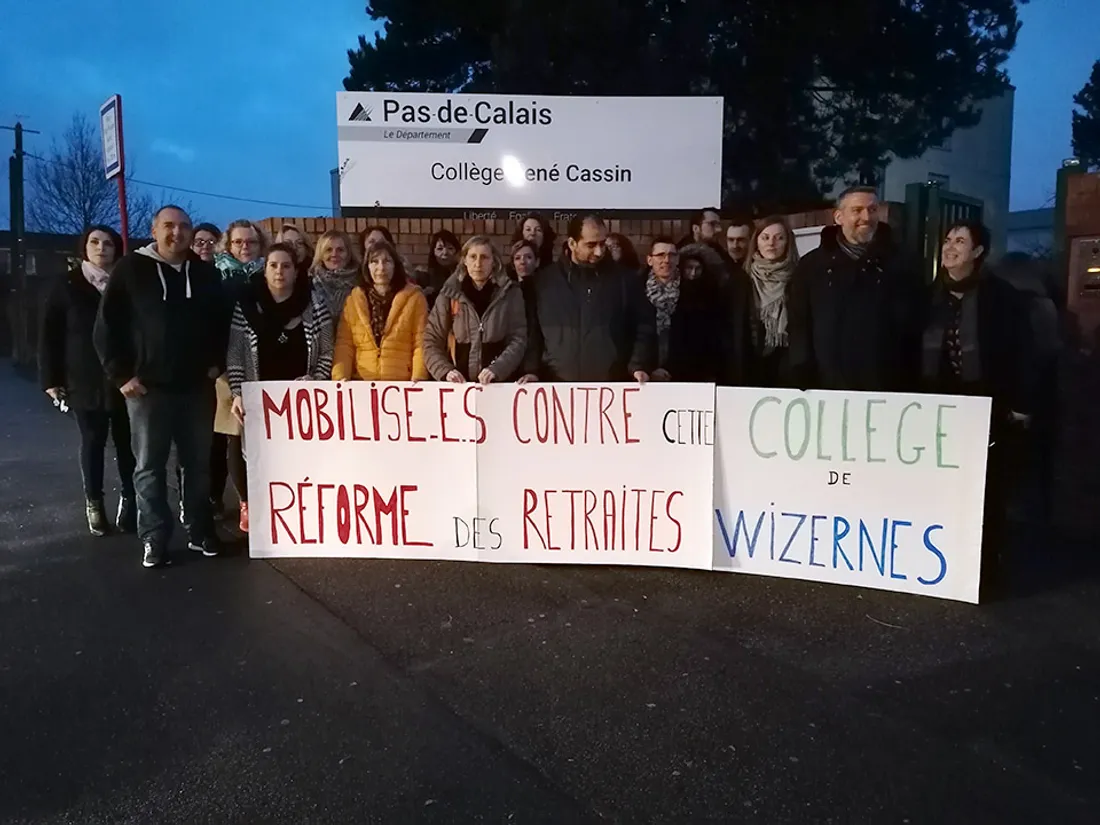 Pas-de-Calais
Le Département
Collège René Cassin
Liberté Égalité Frat
MOBILISÉ.E.S CONTRE CETTE
RÉFORME DES RETRAITES
COLLEGE
DE
WIZERNES